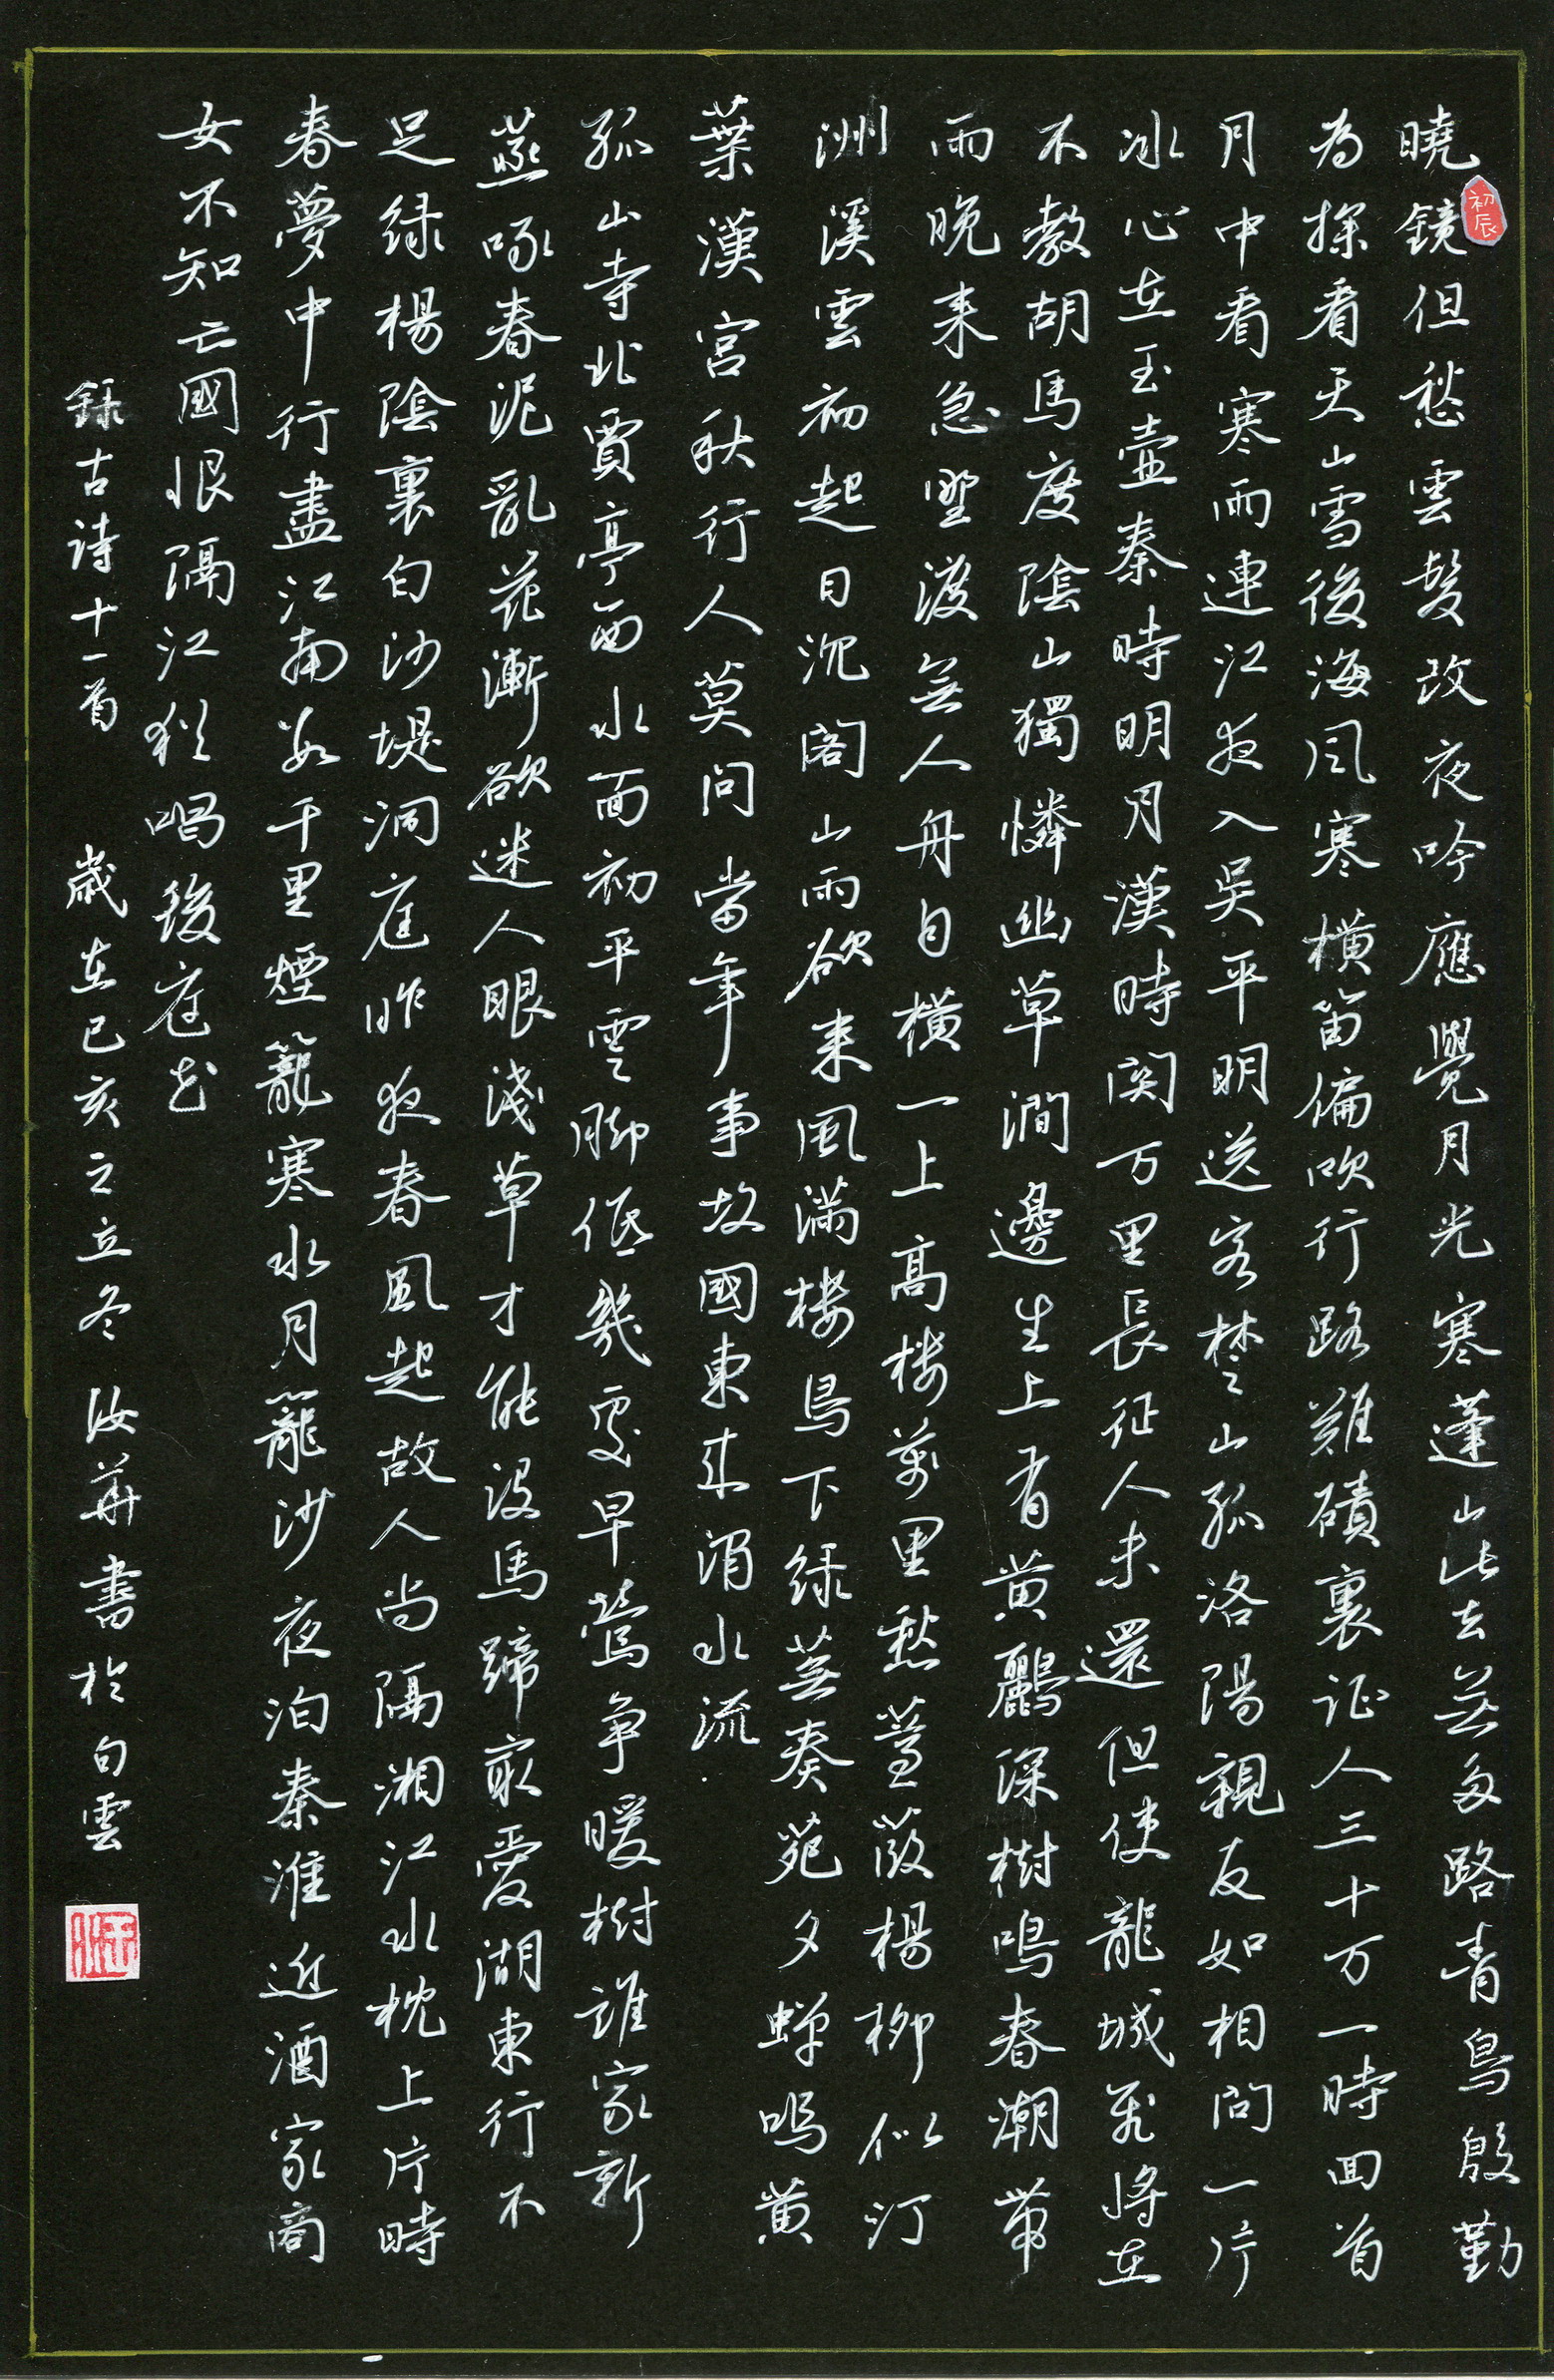 曉鏡但愁雲鬓改夜吟應覺月光寒蓬山此去無多路青鳥殷勤
為探看天山雪後海风寒橫笛偏吹行路難磧裏征人三十万一時回首
月中看寒雨連江夜入吴平明送客楚山孤洛陽親友如相問一片
冰心在玉壺秦時明月漢時関万里長征人未還但使龍城飛將在
不教胡馬度陰山獨憐幽草澗邊生上有黄鸝深樹鳴春潮带
雨晚来急野渡無人舟自橫一上高楼萬里愁蒹葭楊柳似汀
洲溪雲初起日沉阁山雨欲来風满楼鳥下绿蕪秦苑夕蝉鸣黄
葉漢宫秋行人莫问當年事故國東来渭水流
孤山寺北賈亭西水面初平雲脚低幾處早鶯争暖樹誰家新
燕啄春泥亂花漸欲迷人眼淺草才能没馬蹄最愛湖東行不
足绿楊陰裏白沙堤洞庭昨夜春風起故人尚隔湘江水枕上片時
春夢中行盡江南数千里煙籠寒水月籠沙夜泊秦淮近酒家商
女不知亡國恨隔江猶唱後庭花
録古诗十一首 歲在己亥之立冬 汝華書於白雲
初辰